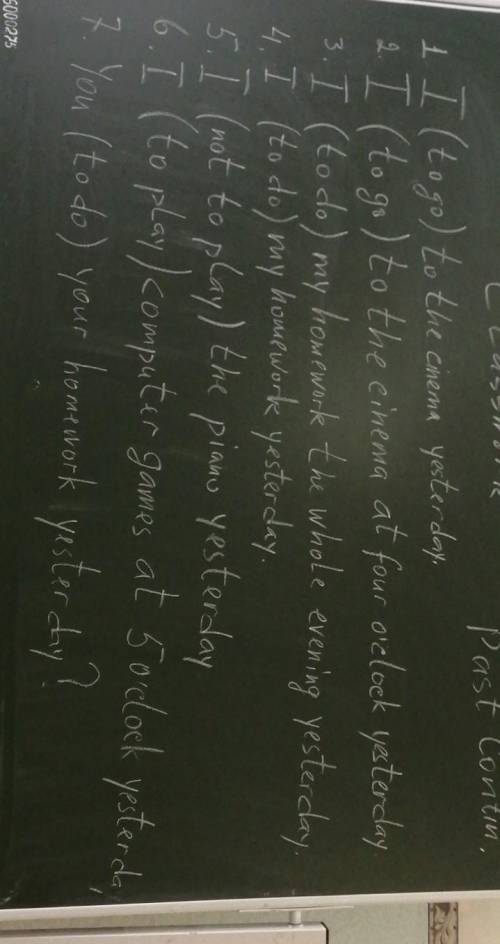 Classwork
Past Contin.
1. I (to go) to the cinema yesterday.
2. I (to go) to the cinema at four o'clock yesterday.
3. I (to do) my homework the whole evening yesterday.
4. I (to do) my homework yesterday.
5. I (not to play) the piano yesterday
6. I (to play) computer games at 5 o'clock yesterda
7. You (to do) your homework yesterday?